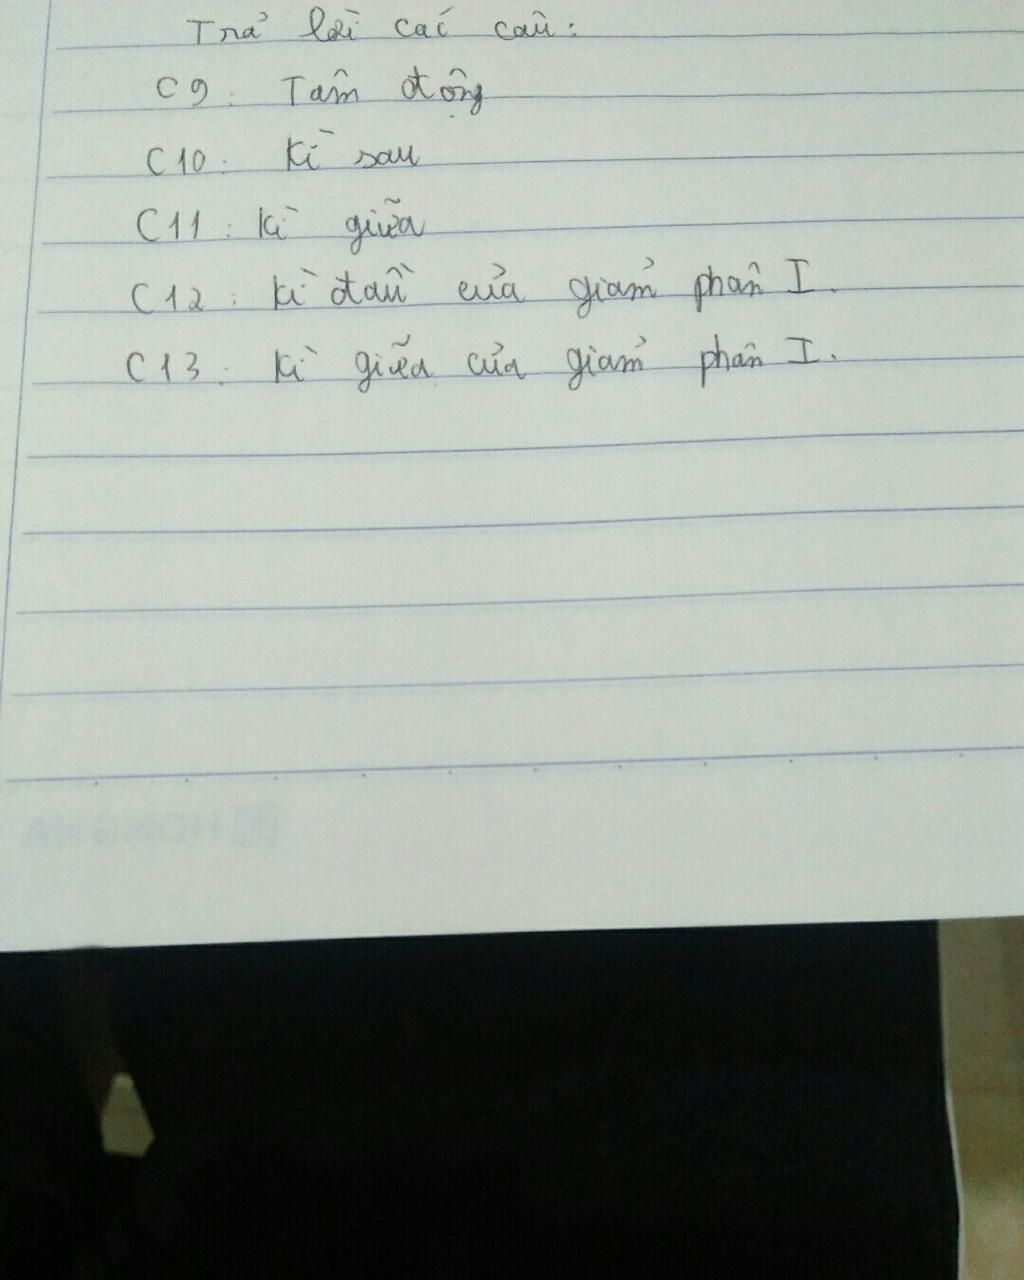 Trả lời các câu:
C9: Tâm động
C10: Kì sau
C11: Kì giữa
C12: Kì đầu của giảm phân I.
C13: Kì giữa của giảm phân I.
HONG HA